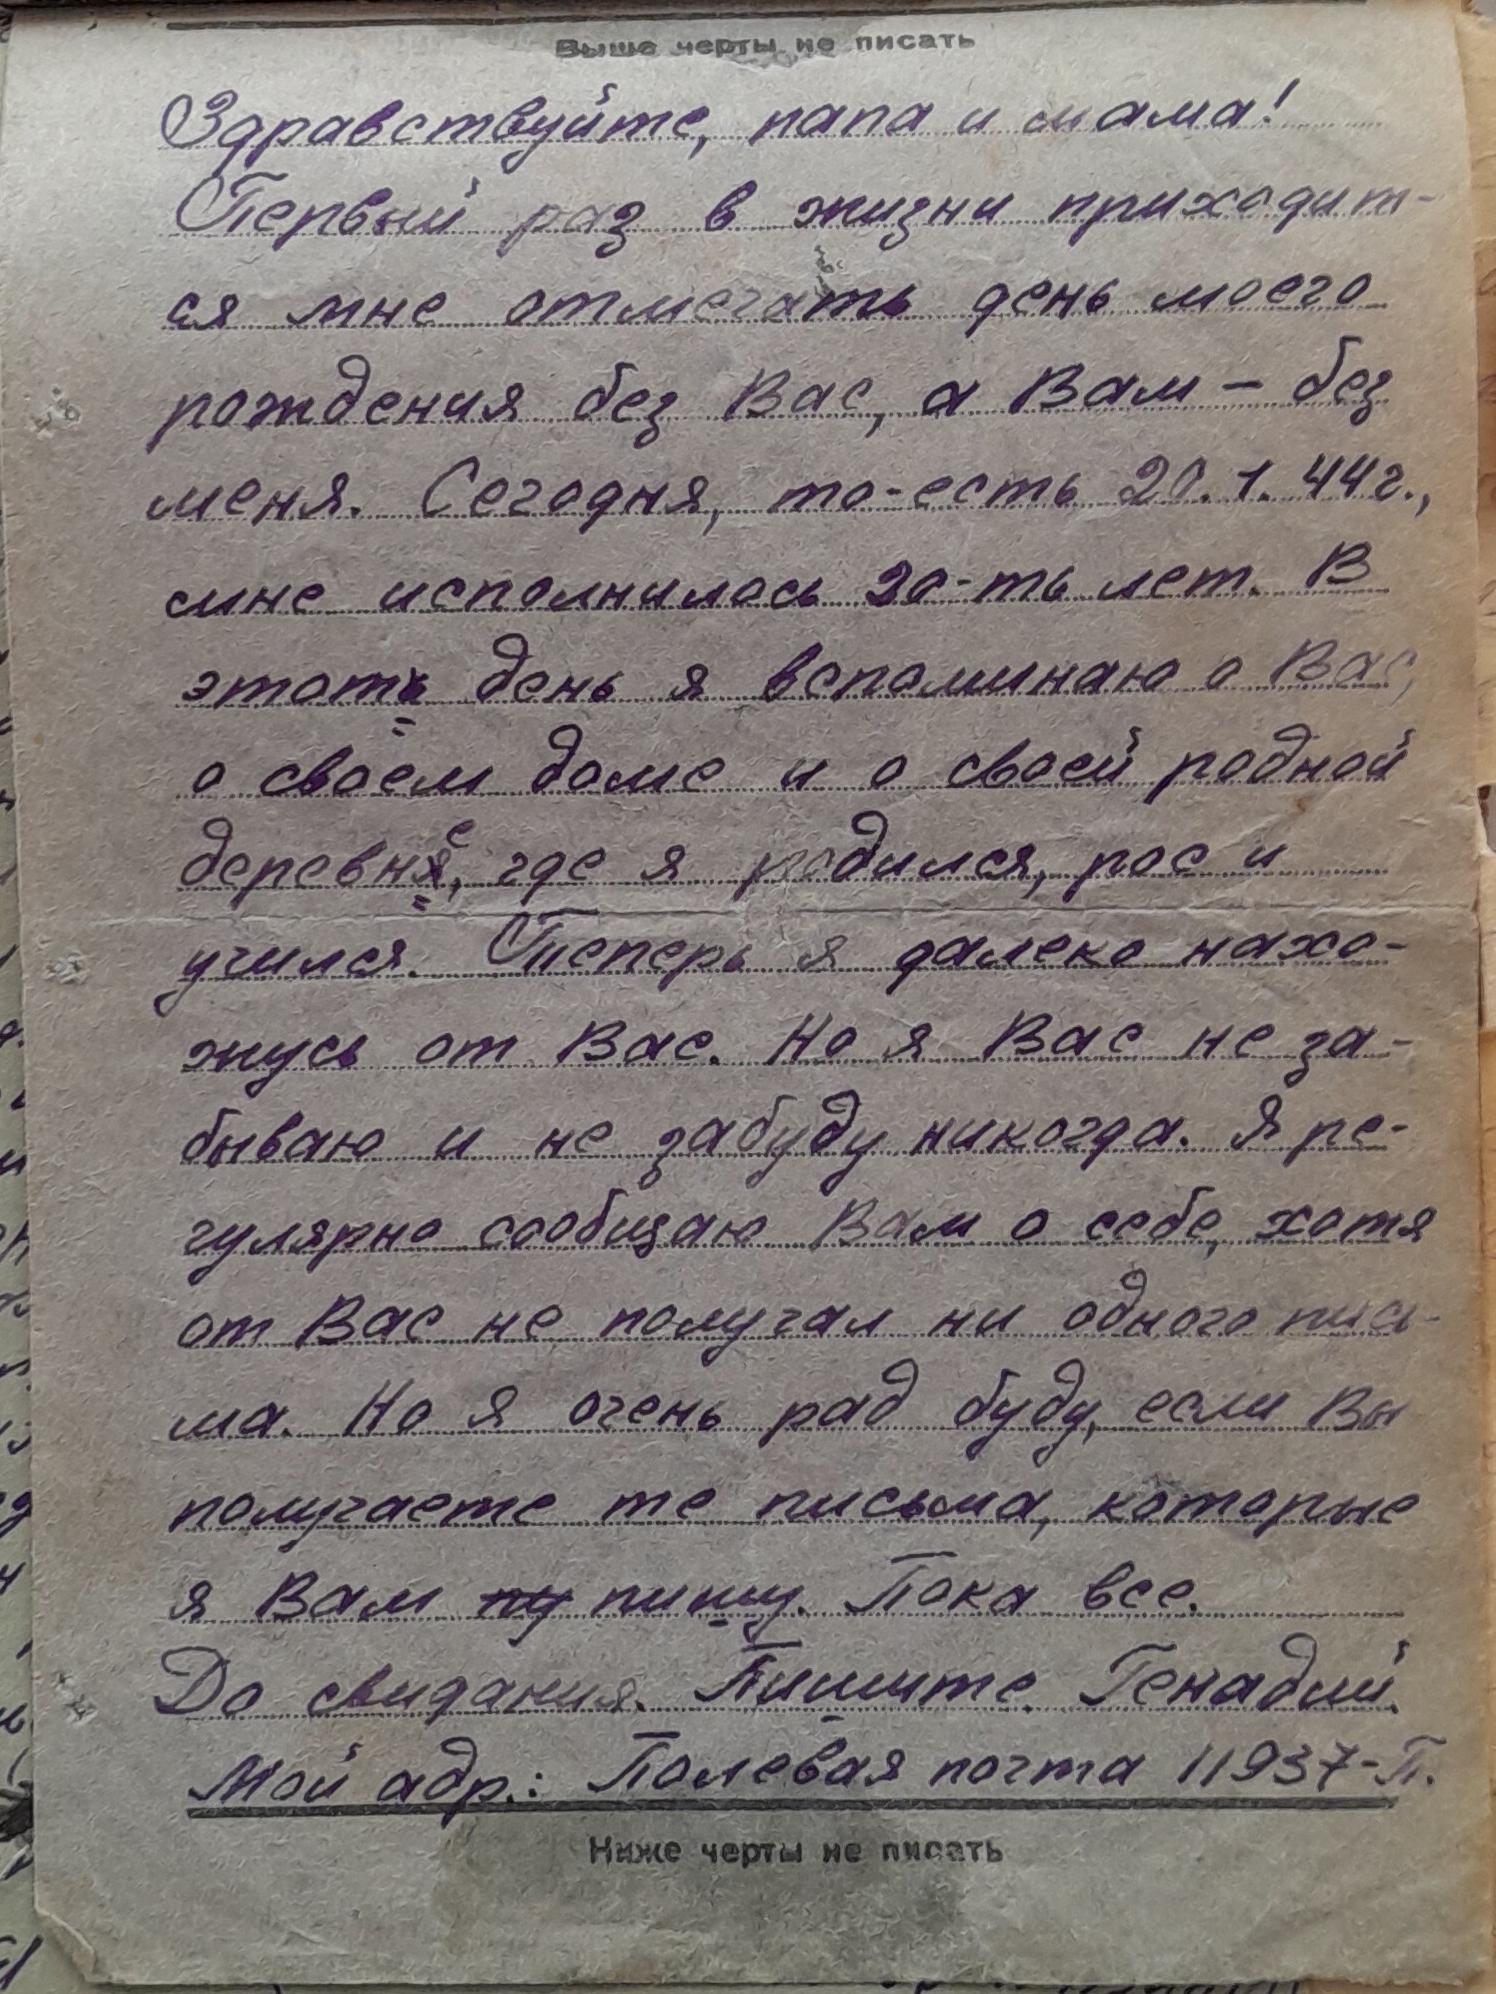 Выше черты не писать
Здравствуйте, папа и мама!
Первый раз в жизни приходит-
ся мне отмечать день моего
рождения без Вас, а Вам – без
меня. Сегодня, то-есть 20.1.44г.,
мне исполнилось 20-ть лет. В
этоть день я вспоминаю о Вас,
о своем доме и о своей родной
деревне, где я родился, рос и
учился. Теперь я далеко нахо-
жусь от Вас. Но я Вас не за-
бываю и не забуду никогда. Я ре-
гулярно сообщаю Вам о себе, хотя
от Вас не получал ни одного пись-
ма. Но я очень рад буду, если Вы
получаете те письма, которые
я Вам пу пишу. Пока все.
До свидания. Пишите. Генадий.
Мой адр.: Полевая почта 11937-П.
Ниже черты не писать